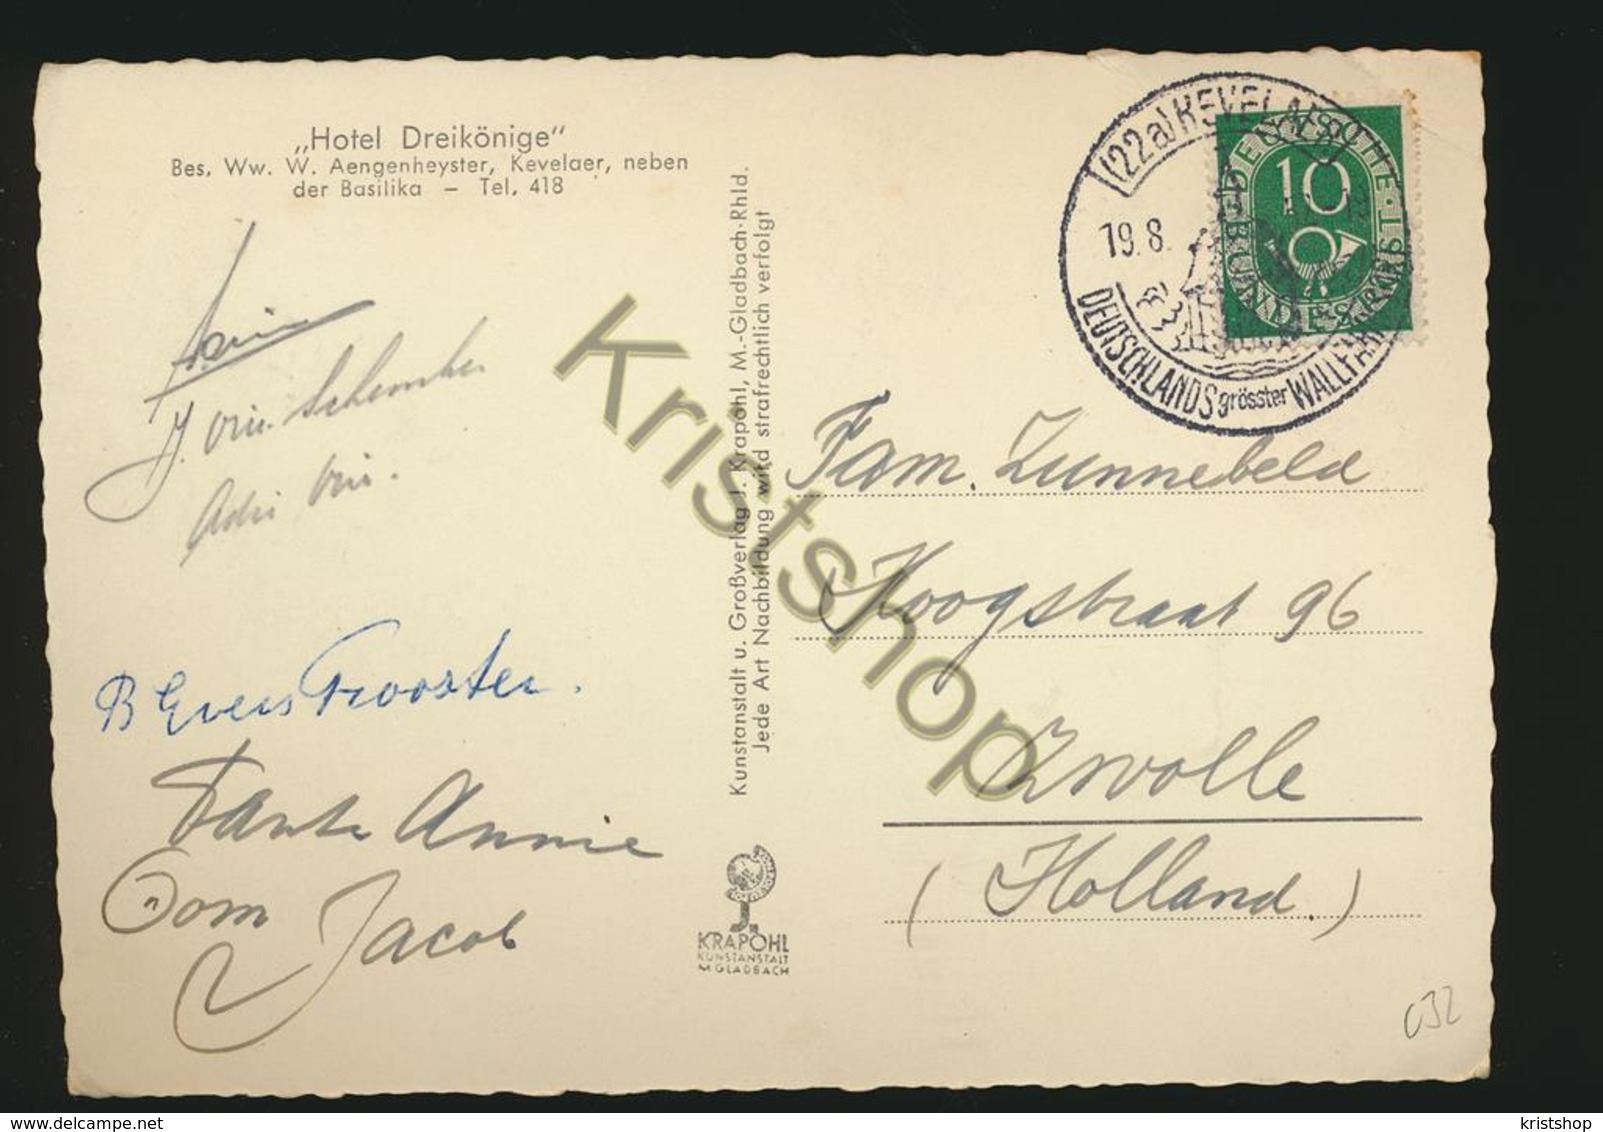 „Hotel Dreikönige"
Bes. Ww. W. Aengenheyster, Kevelaer, neben
der Basilika – Tel. 418
B Evers Trooster.
Tante Annie
Oom
Jacob
Kunstanstalt u. Großverlag J. Krapohl, M.-Gladbach-Rhld.
Jede Art Nachbildung wird strafrechtlich verfolgt
KRAPOHL
KUNSTANSTALT
M. GLADBACH
(22a) KEVELAER
19.8.
DEUTSCHLANDS grösster WALLFAHRTS
DEUTSCHE
BUNDESPOST
10
Fam. Zunnebeld
Hoogstraat 96
Zwolle
(Holland.)
032
Kristshop
delcampe.net
kristshop